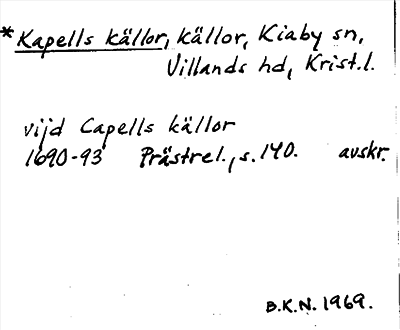 *Kapells källor, källor, Kiaby sn,
Villands hd, Krist.l.
vijd Capells källor
1690-93 Prästrel., s. 140. avskr.
B.K.N. 1969.